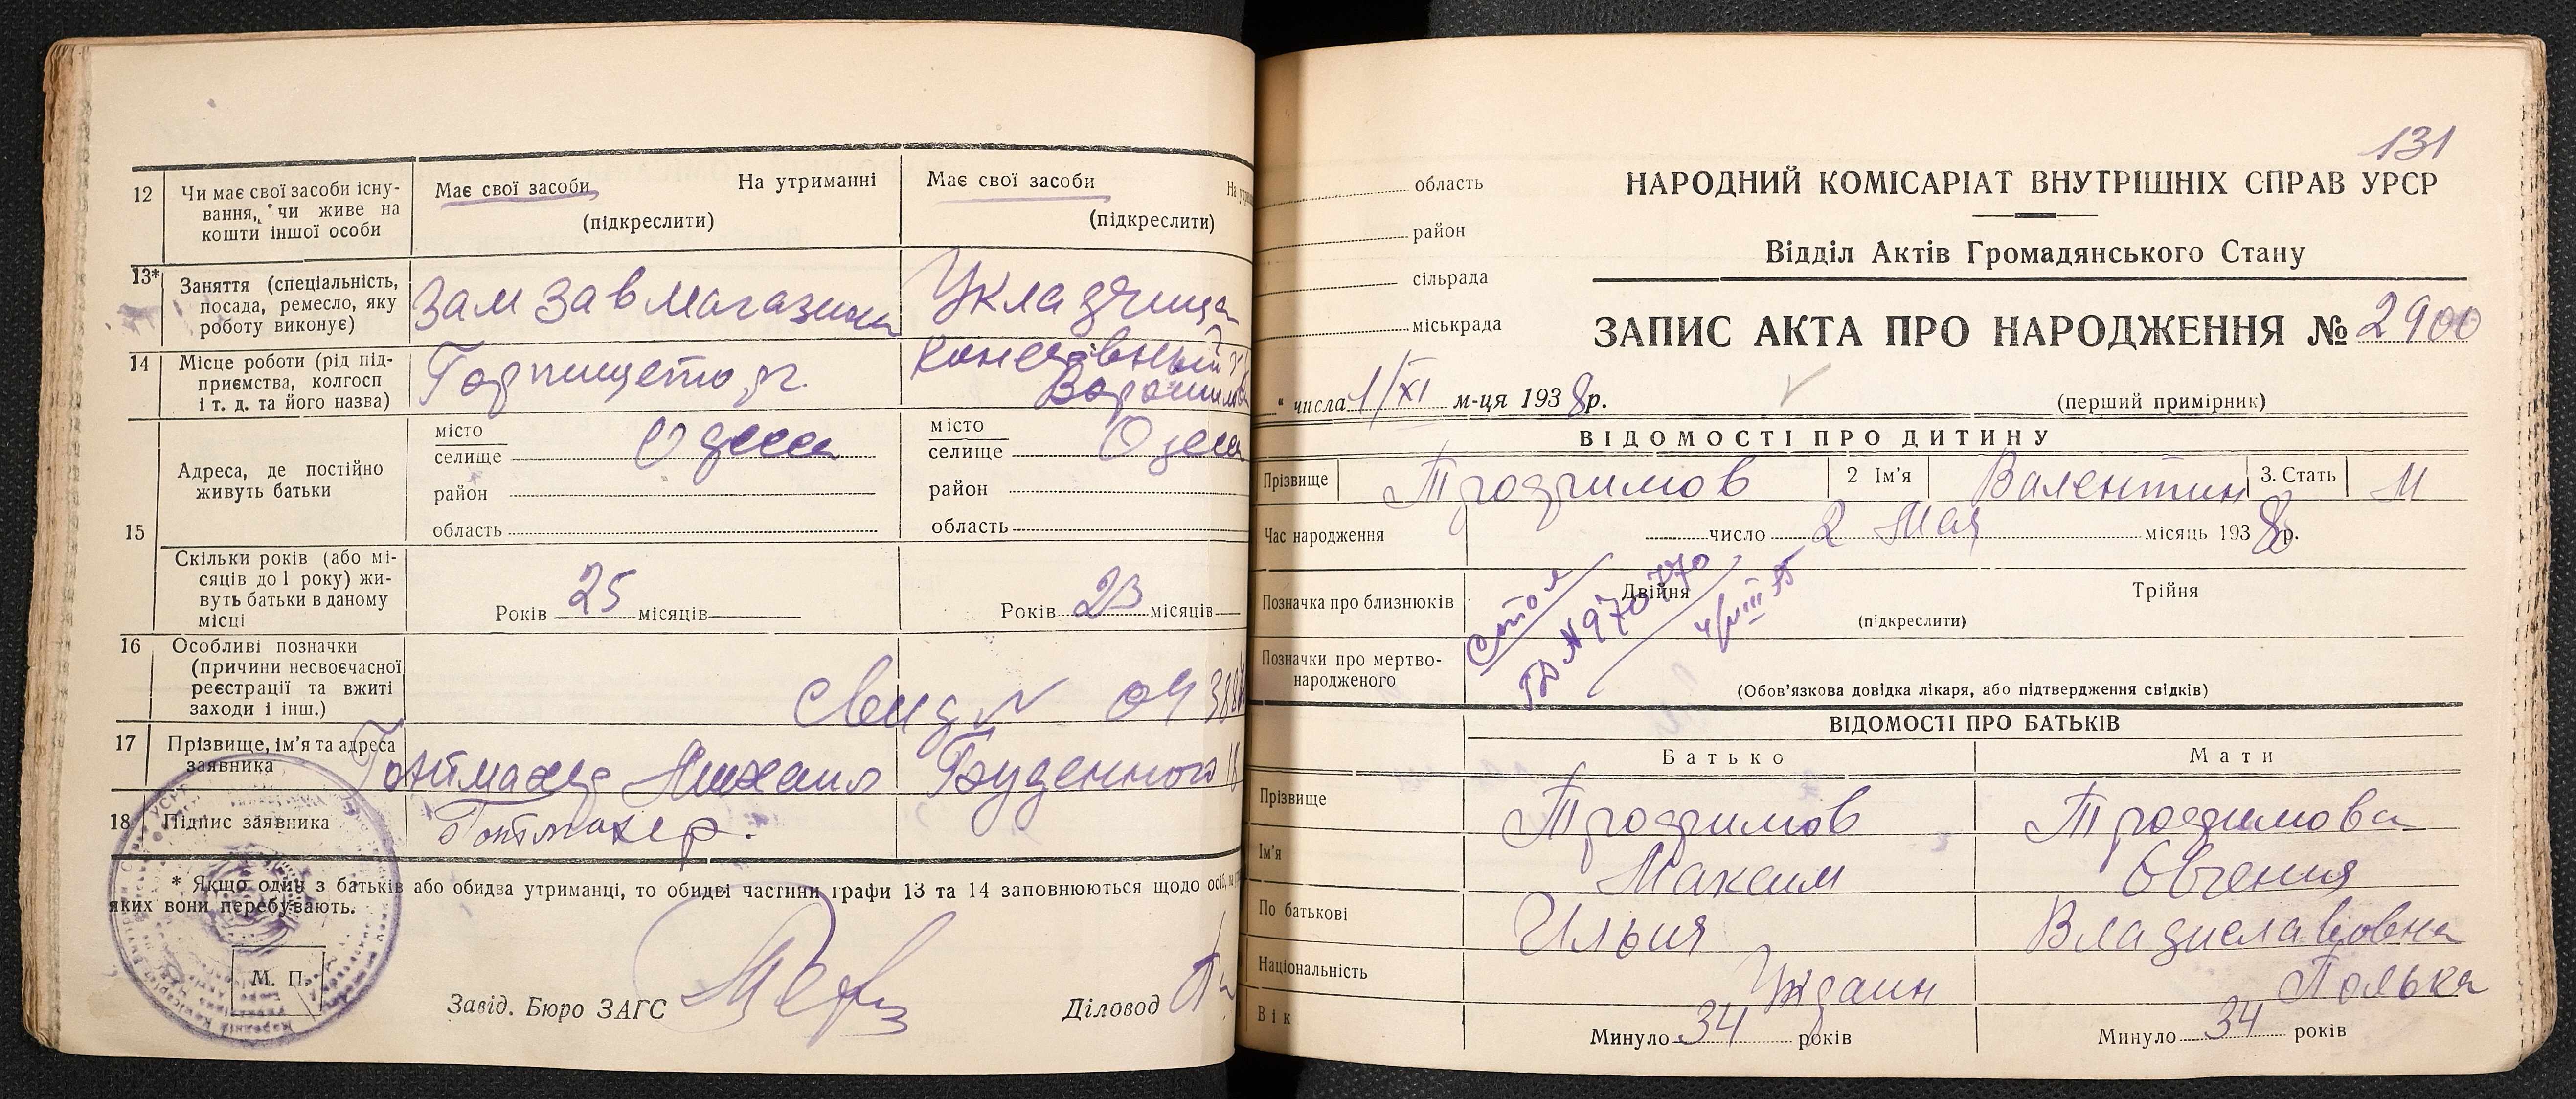 12 Чи має свої засоби існу-
вання, чи живе на
кошти іншої особи
Має свої засоби На утриманні
(підкреслити)
Має свої засоби
(підкреслити)
13* Заняття (спеціальність,
посада, ремесло, яку
роботу виконує)
Зам Зав Магазина
Укладчица
14 Місце роботи (рід під-
приємства, колгосп
і т. д. та його назва)
Горпищеторг.
Консервный
Ворошилова
15 Адреса, де постійно
живуть батьки
місто
селище Одесса
район
область
місто
селище Одесса
район
область
Скільки років (або мі-
сяців до 1 року) жи-
вуть батьки в даному
місці
Років 25 місяців
Років 23 місяців
16 Особливі позначки
(причини несвоєчасної
реєстрації та вжиті
заходи і інш.)
Свид №
17 Прізвище, ім'я та адреса
заявника
Гойтмахер Михаил Буденного
18 Підпис заявника
* Якщо один з батьків або обидва утриманці, то обидві частини графи 13 та 14 заповнюються щодо осіб, на
яких вони перебувають.
М. П.
Завід. Бюро ЗАГС
Діловод
131
область
район
сільрада
міськрада
НАРОДНИЙ КОМІСАРІАТ ВНУТРІШНІХ СПРАВ УРСР
Відділ Актів Громадянського Стану
ЗАПИС АКТА ПРО НАРОДЖЕННЯ № 2900
" числа 1/XI м-ця 1938 р.
(перший примірник)
ВІДОМОСТІ ПРО ДИТИНУ
Прізвище Трофимов 2 Ім'я Валентин 3. Стать М
Час народження число 2 Мая місяць 1938 р.
Позначка про близнюків Двійня Трійня
(підкреслити)
№970770
4/VIII 55
Позначки про мертво-
народженого
(Обов'язкова довідка лікаря, або підтвердження свідків)
ВІДОМОСТІ ПРО БАТЬКІВ
Батько Мати
Прізвище Трофимов Трофимова
Ім'я Максим Евгения
По батькові Ильич Владиславовна
Національність Полька
Вік Минуло 34 років Минуло 34 років